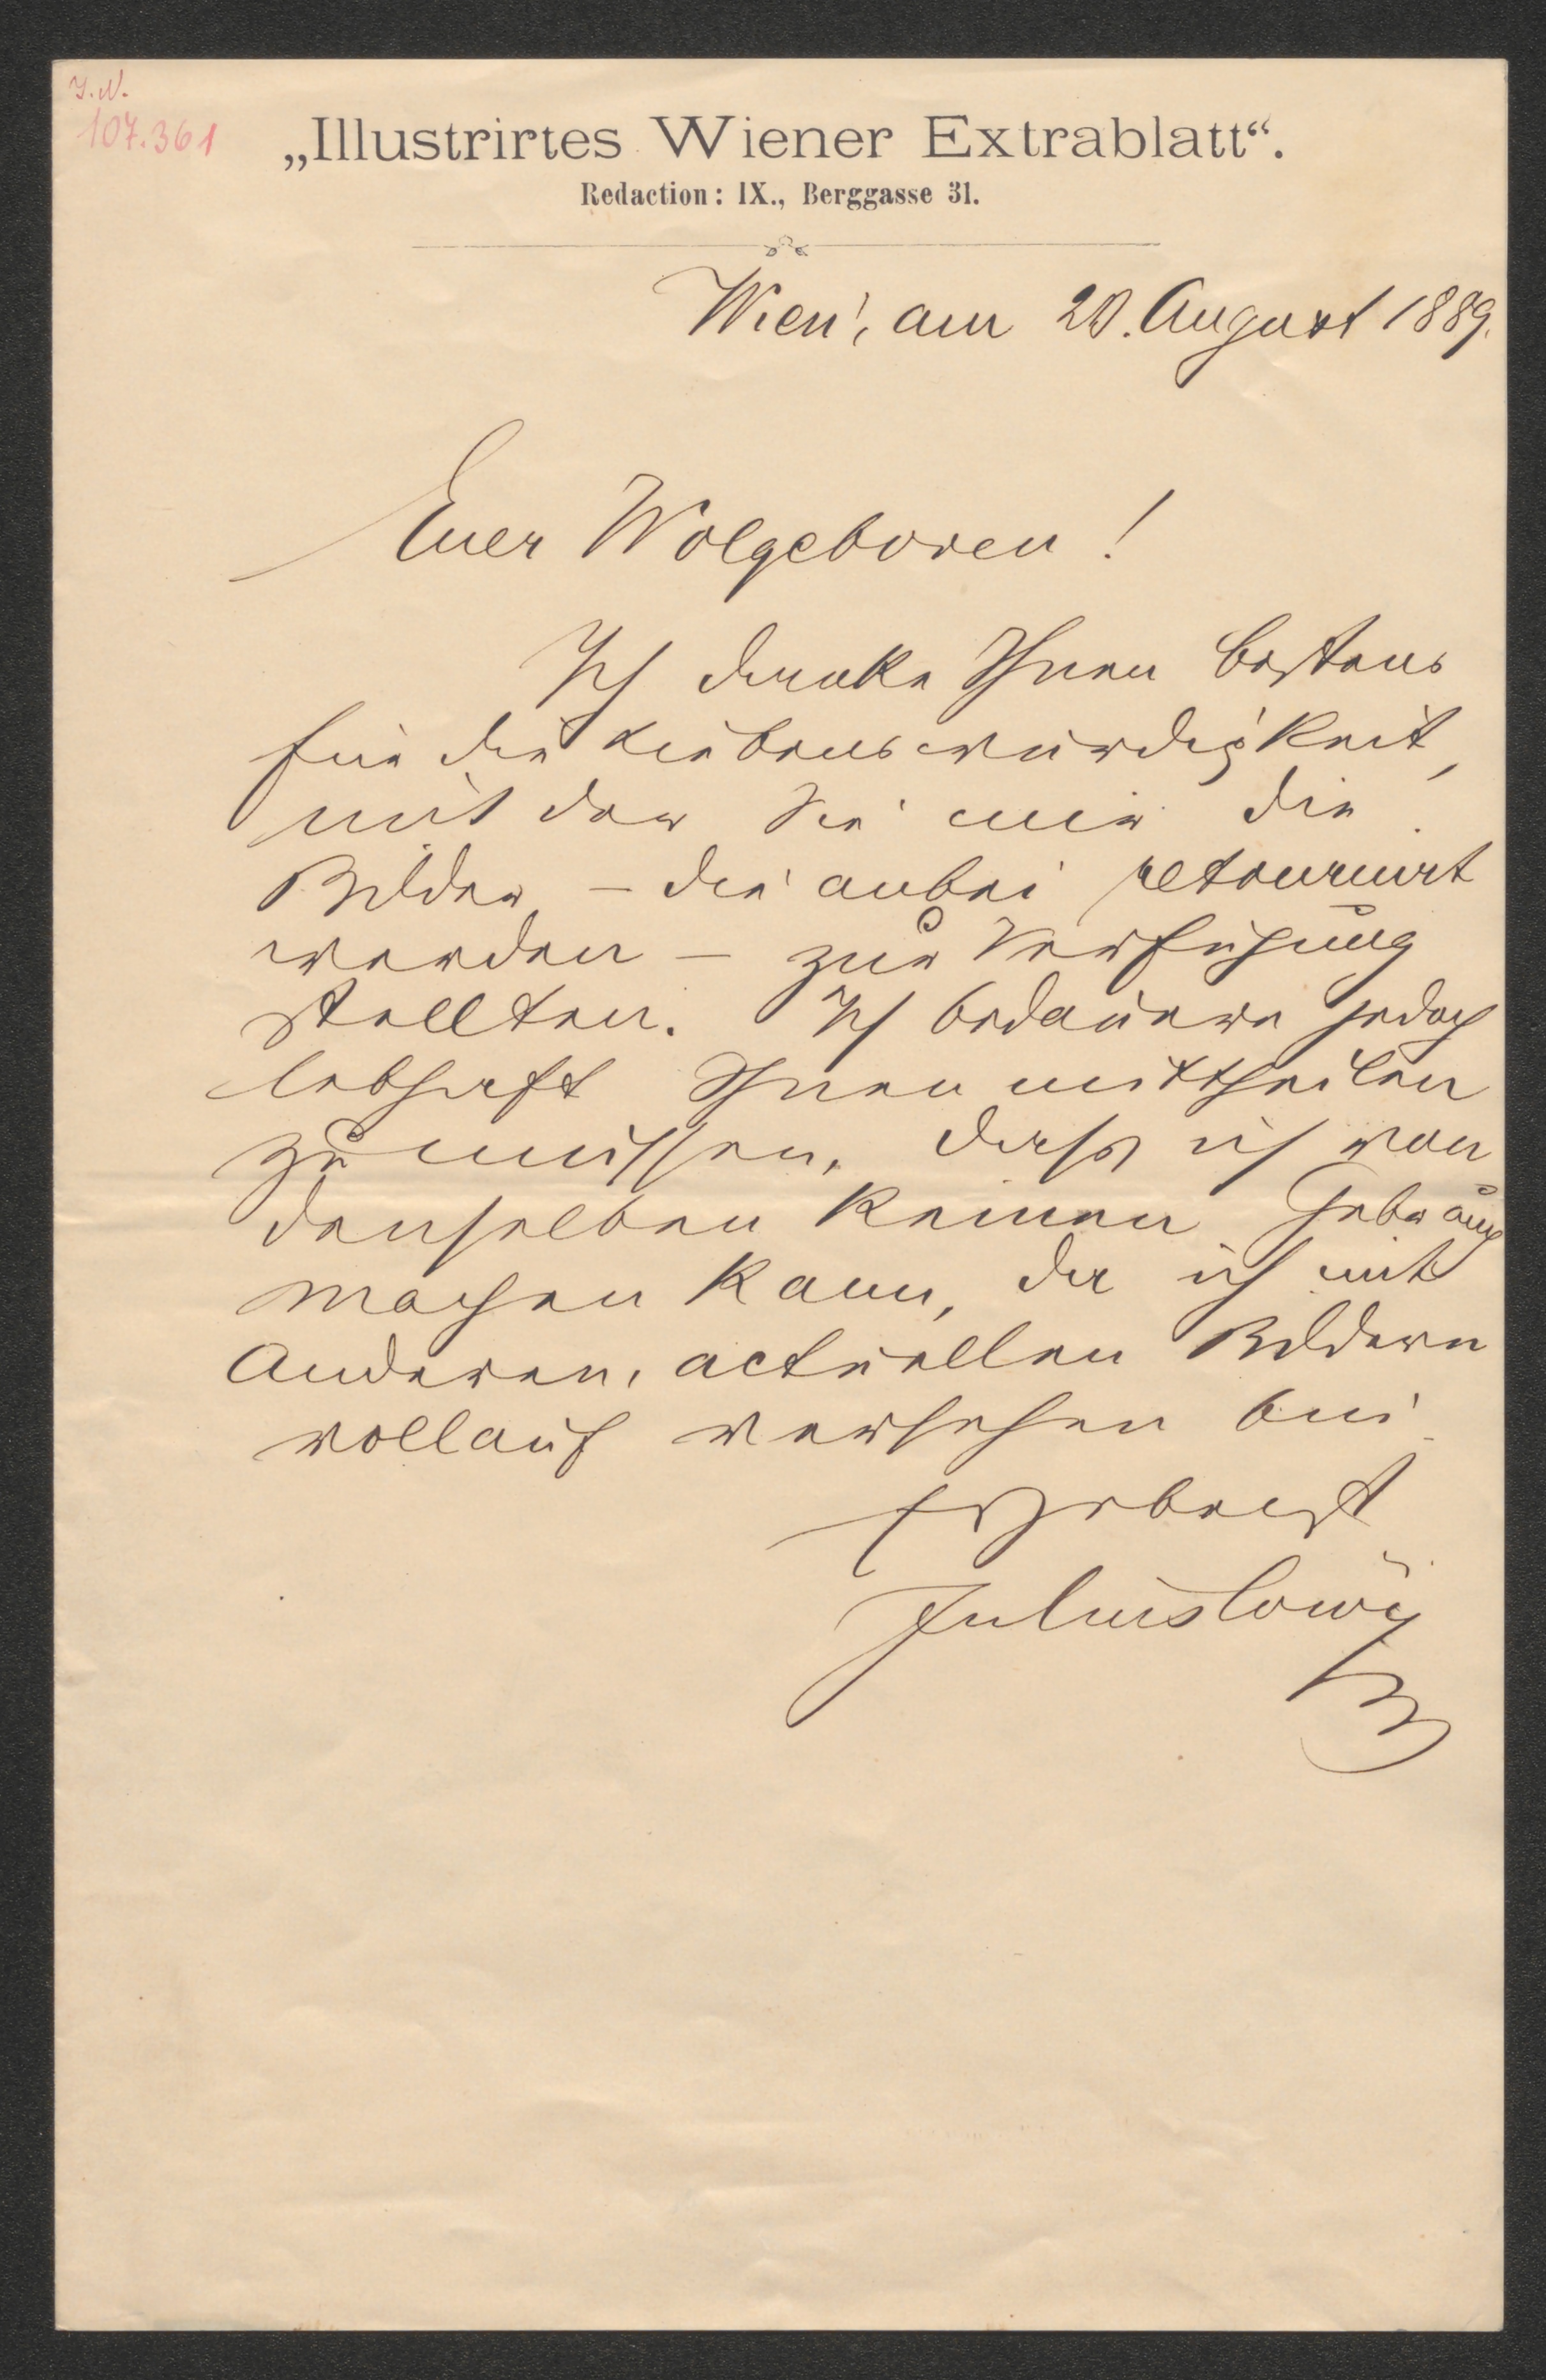 I.N.
107.361
„Illustrirtes Wiener Extrablatt“.
Redaction: IX., Berggasse 31.
Wien, am 20. August 1889.
Euer Wolgeboren!
Ich danke Ihnen bestens
für die Liebenswürdigkeit,
mit der Sie mir die
Bilder – die anbei retournirt
werden – zur Verfügung
stellten. Ich bedauere jedoch
lebhaft Ihnen mittheilen
zu müssen, dass ich von
denselben keinen Gebrauch
machen kann, da ich mit
Anderen, actuellen Bildern
vollauf versehen bin.
Ergebenst
Julius Löwy